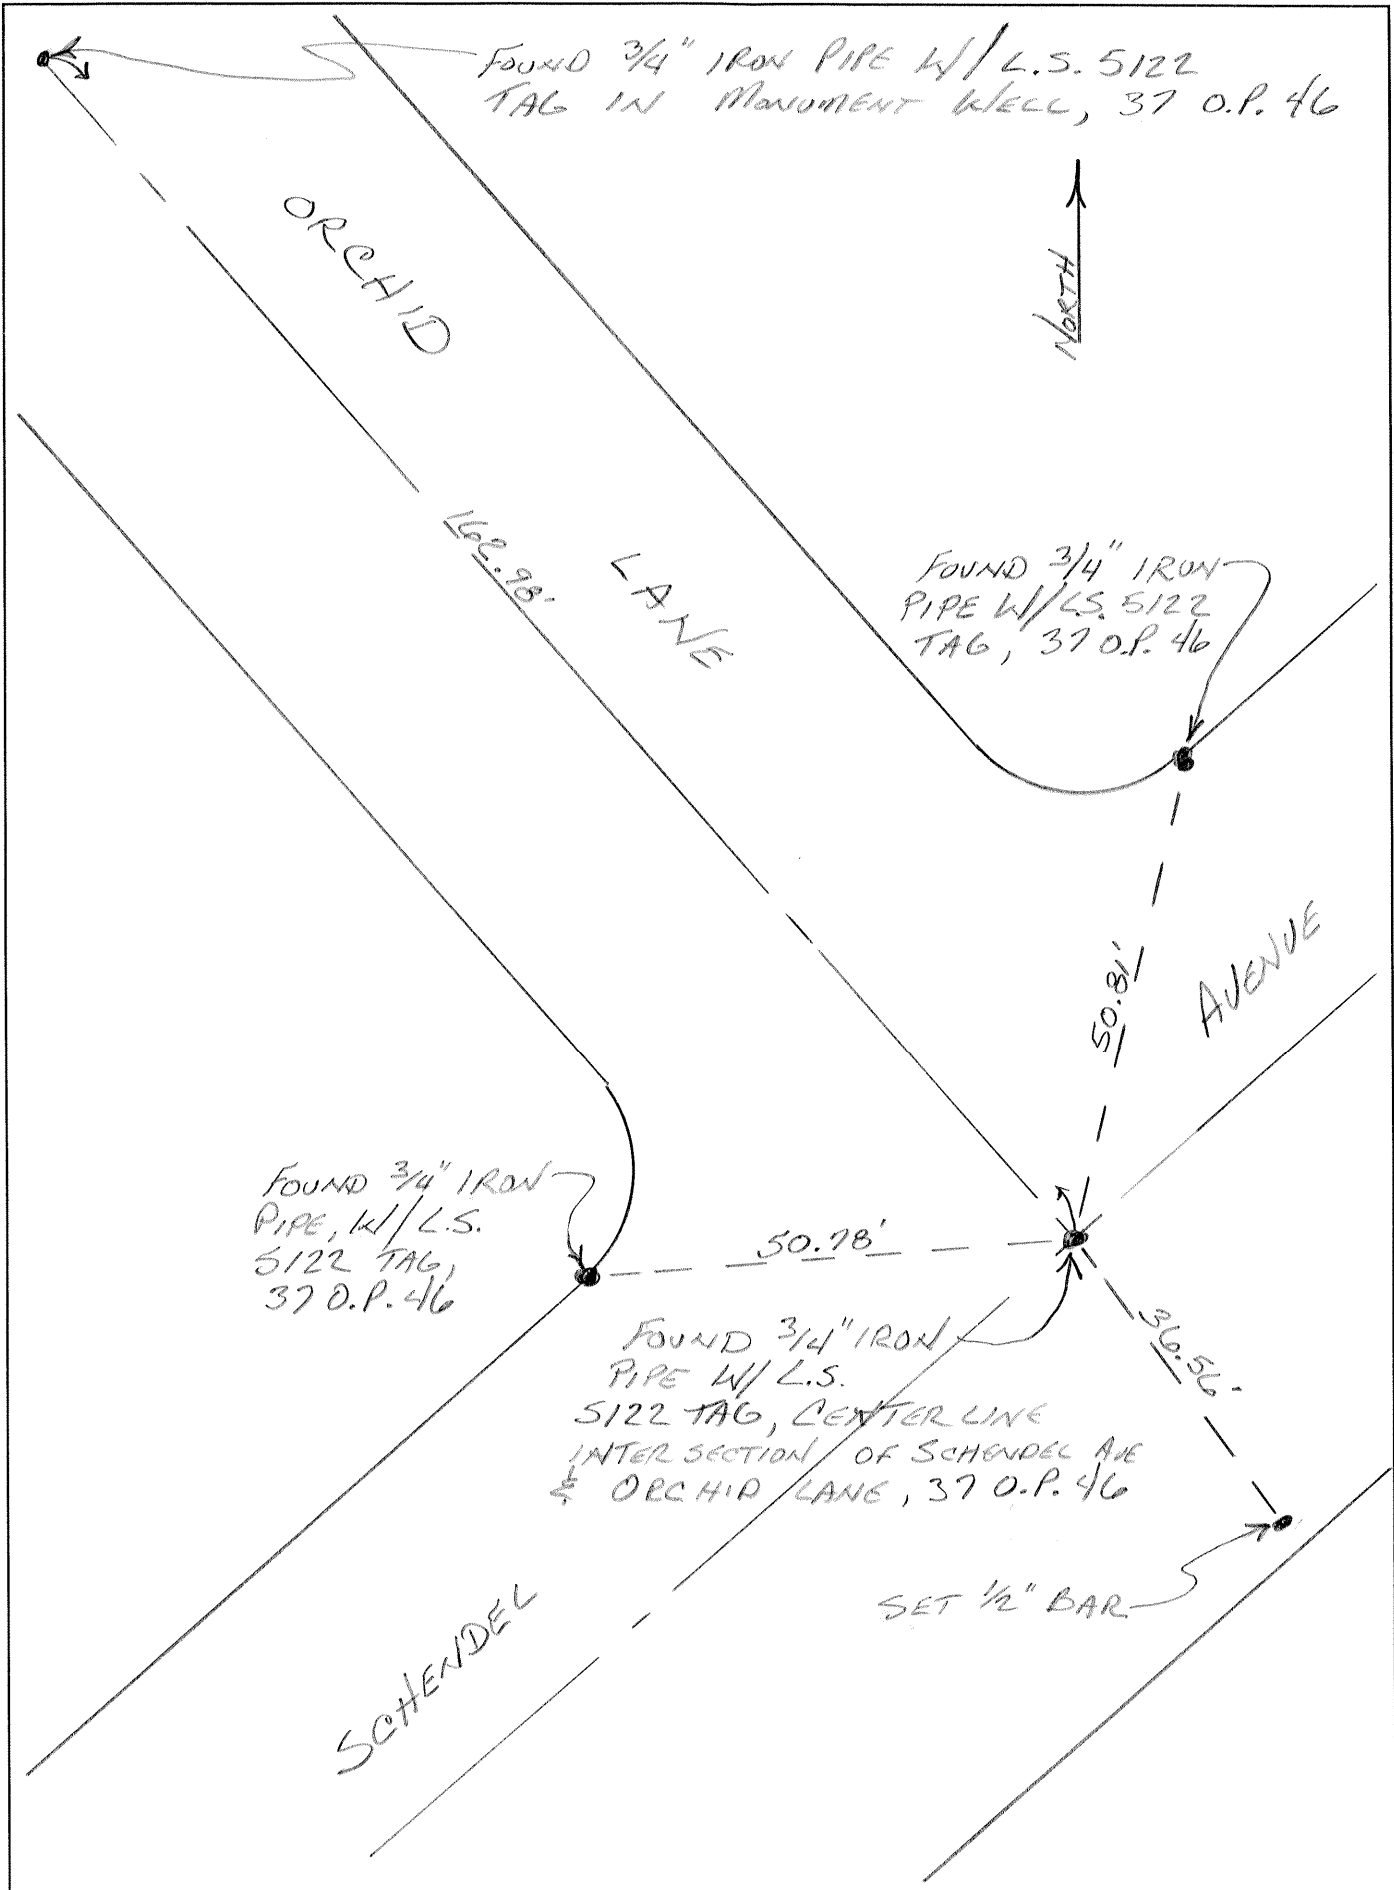 FOUND 3/4" IRON PIPE W/ L.S. 5122
TAG IN MONUMENT WELL, 37 O.P. 46
NORTH
ORCHID
LANE
162.98'
FOUND 3/4" IRON
PIPE W/ L.S. 5122
TAG, 37 O.P. 46
50.81'
AVENUE
FOUND 3/4" IRON
PIPE, W/ L.S.
5122 TAG,
37 O.P. 46
50.78'
36.56'
FOUND 3/4" IRON
PIPE W/ L.S.
5122 TAG, CENTERLINE
INTERSECTION OF SCHENDEL AVE
& ORCHID LANE, 37 O.P. 46
SET 1/2" BAR
SCHENDEL